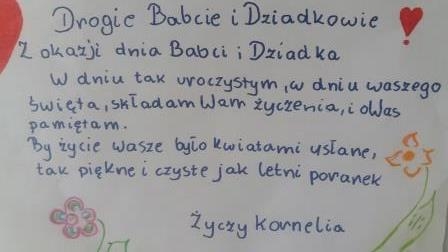 Drogie Babcie i Dziadkowie
Z okazji dnia Babci i Dziadka
W dniu tak uroczystym, w dniu waszego
święta, składam Wam życzenia, i o Was
pamiętam.
By życie wasze było kwiatami usłane,
tak piękne i czyste jak letni poranek
Życzy Kornelia